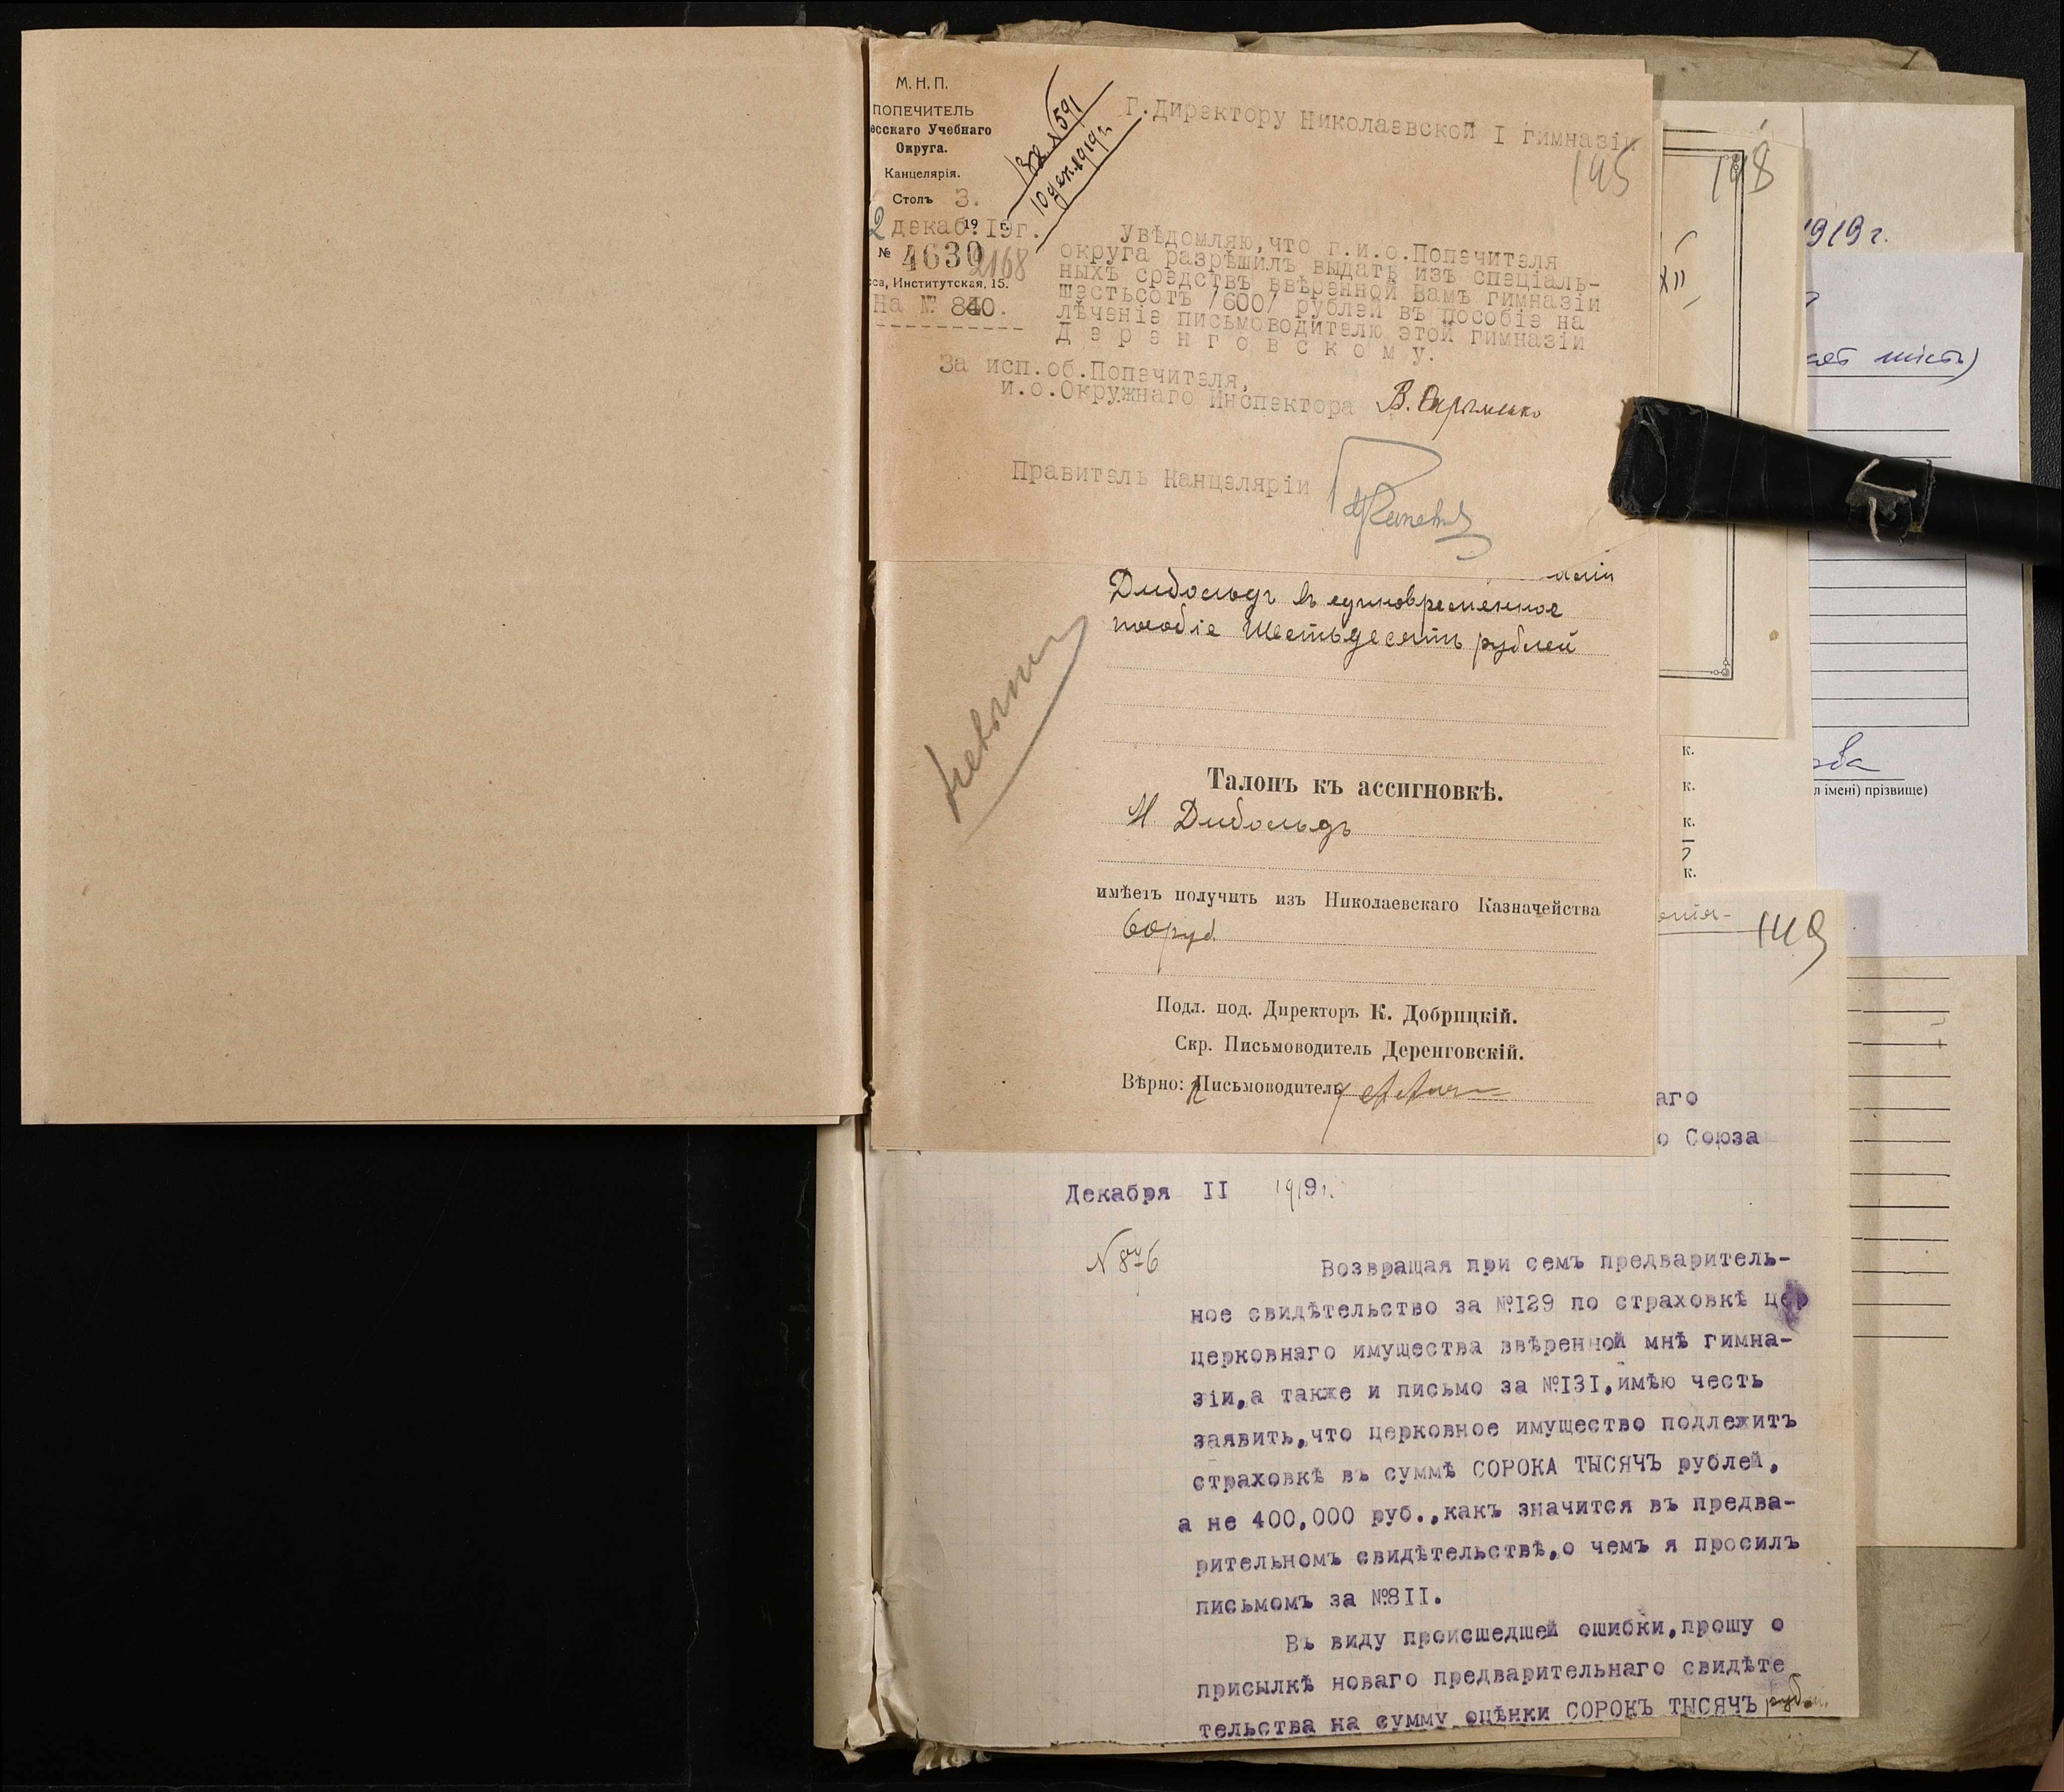 М. Н. П.
ПОПЕЧИТЕЛЬ
есскаго Учебнаго
Округа.
Канцелярія.
Столъ 3.
2 декаб. 19 19г.
№ 4630
2168
сса, Институтская, 15.
На № 840.
591
10 дек. 1919 г.
Г.Директору Николаевской I гимназіи
195
Увѣдомляю,что г.и.о.Попечителя
округа разрѣшилъ выдать изъ спеціаль-
ныхъ средствъ ввѣренной Вамъ гимназіи
шестьсотъ /600/ рублей въ пособіе на
лѣченіе письмоводителю этой гимназіи
Деренговскому.
За исп.об.Попечителя,
и.о.Окружнаго Инспектора
Правитель Канцеляріи
Дибольдъ въ единовременное
пособіе Шестьдесятъ рублей
Талонъ къ ассигновкѣ.
Н Дибольдъ
имѣетъ получить изъ Николаевскаго Казначейства
60 руб.
Подл. под. Директоръ К. Добрицкій.
Скр. Письмоводитель Деренговскій.
Вѣрно: Письмоводитель
198
XII
1919 г.
шість)
л імені) прізвище)
к.
к.
к.
к.
енія-
149
аго
о Союза
Декабря II 1919г.
N 876
Возвращая при семъ предваритель-
ное свидѣтельство за №I29 по страховкѣ цер
церковнаго имущества ввѣренной мнѣ гимна-
зіи,а также и письмо за №I3I,имѣю честь
заявить,что церковное имущество подлежитъ
страховкѣ въ суммѣ СОРОКА ТЫСЯЧЪ рублей,
а не 400,000 руб.,какъ значится въ предва-
рительномъ свидѣтельствѣ,о чемъ я просилъ
письмомъ за №8II.
Въ виду происшедшей ошибки,прошу о
присылкѣ новаго предварительнаго свидѣте
тельства на сумму оцѣнки СОРОКЪ ТЫСЯЧЪ рублей.